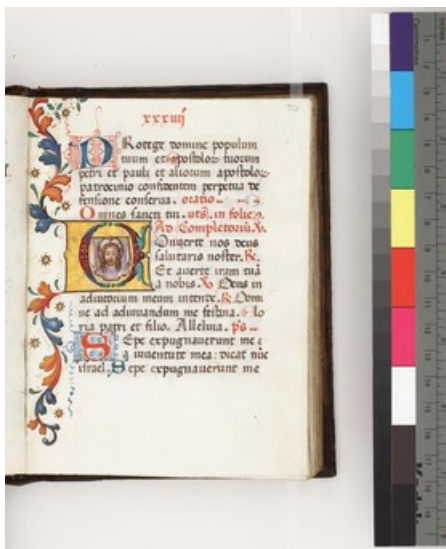 xxxiiij
PRotege domine populum
tuum et apostolorꝫ tuorum
petri et pauli et aliorum apostolorꝫ
patrocinio confidentem perpetua de
fensione conserua. oratio
Omnes sancti tui. ut sͣ. in folio
Ad Completorium. ℣.
COnuerte nos deus
salutaris noster. ℟.
Et auerte iram tuā
a nobis. ℣. Deus in
adiutorium meum intende. ℟. Domi
ne ad adiuuandum me festina. Glo
ria patri et filio. Alleluia. ps
SEpe expugnauerunt me
a iuuentute mea: dicat nūc
israel. Sepe expugnauerunt me